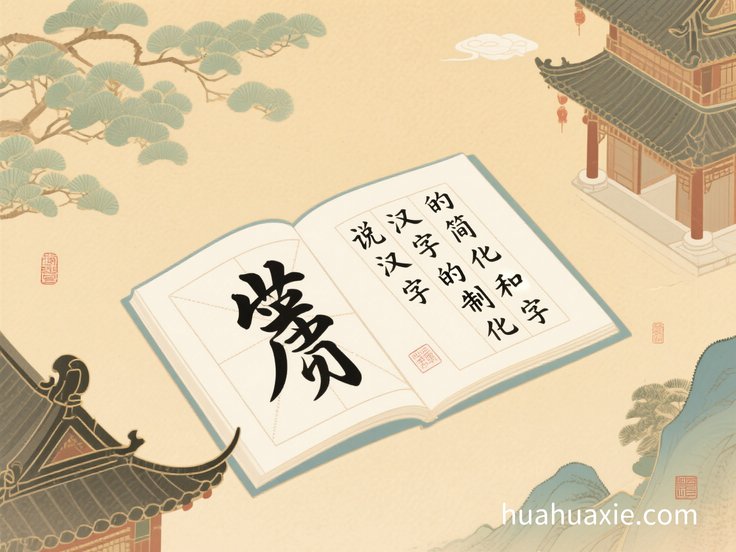 的简化和字
汉字的制化
说汉字
huahuaxie.com